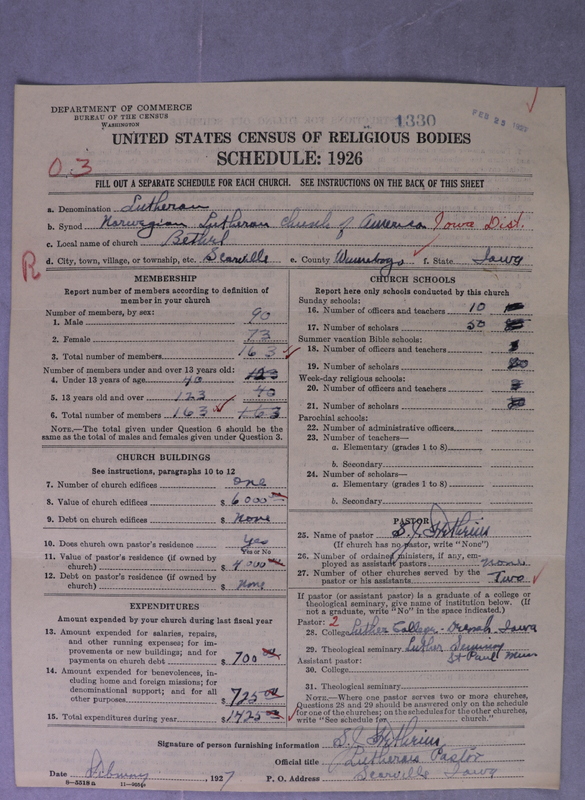 DEPARTMENT OF COMMERCE
BUREAU OF THE CENSUS
WASHINGTON
1330
FEB 25
UNITED STATES CENSUS OF RELIGIOUS BODIES
SCHEDULE: 1926
0.3
FILL OUT A SEPARATE SCHEDULE FOR EACH CHURCH. SEE INSTRUCTIONS ON THE BACK OF THIS SHEET
a. Denomination Lutheran
b. Synod Norwegian Lutheran Church of America Iowa Dist.
c. Local name of church Bethel
d. City, town, village, or township, etc. Scarville e. County Winnebago f. State Iowa
R
MEMBERSHIP
Report number of members according to definition of
member in your church
Number of members, by sex:
1. Male 90
2. Female 73
3. Total number of members 163
Number of members under and over 13 years old:
4. Under 13 years of age 40 123
5. 13 years old and over 123 40
6. Total number of members 163 163
NOTE.—The total given under Question 6 should be the
same as the total of males and females given under Question 3.
CHURCH BUILDINGS
See instructions, paragraphs 10 to 12
7. Number of church edifices one
8. Value of church edifices $ 6000
9. Debt on church edifices $ none
10. Does church own pastor's residence yes
Yes or No
11. Value of pastor's residence (if owned by
church) $ 4000
12. Debt on pastor's residence (if owned by
church) $ none
EXPENDITURES
Amount expended by your church during last fiscal year
13. Amount expended for salaries, repairs,
and other running expenses; for im-
provements or new buildings; and for
payments on church debt $ 700
14. Amount expended for benevolences, in-
cluding home and foreign missions; for
denominational support; and for all
other purposes $ 725
15. Total expenditures during year $ 1425
CHURCH SCHOOLS
Report here only schools conducted by this church
Sunday schools:
16. Number of officers and teachers 10
17. Number of scholars 50
Summer vacation Bible schools:
18. Number of officers and teachers
19. Number of scholars
Week-day religious schools:
20. Number of officers and teachers
21. Number of scholars
Parochial schools:
22. Number of administrative officers
23. Number of teachers—
a. Elementary (grades 1 to 8)
b. Secondary
24. Number of scholars—
a. Elementary (grades 1 to 8)
b. Secondary
PASTOR
25. Name of pastor S. J.
(If church has no pastor, write "None")
26. Number of ordained ministers, if any, em-
ployed as assistant pastors none
27. Number of other churches served by the
pastor or his assistants Two
If pastor (or assistant pastor) is a graduate of a college or
theological seminary, give name of institution below. (If
not a graduate, write "No" in the space indicated.)
Pastor: 2
28. College Luther College - Decorah, Iowa
29. Theological seminary Luther Seminary
St Paul Minn
Assistant pastor:
30. College
31. Theological seminary
NOTE.—Where one pastor serves two or more churches,
Questions 28 and 29 should be answered only on the schedule
for one of the churches; on the schedules for the other churches,
write "See schedule for church."
Signature of person furnishing information S. J.
Official title Lutheran Pastor
Date February, 1927 P. O. Address Scarville Iowa
8—5518a